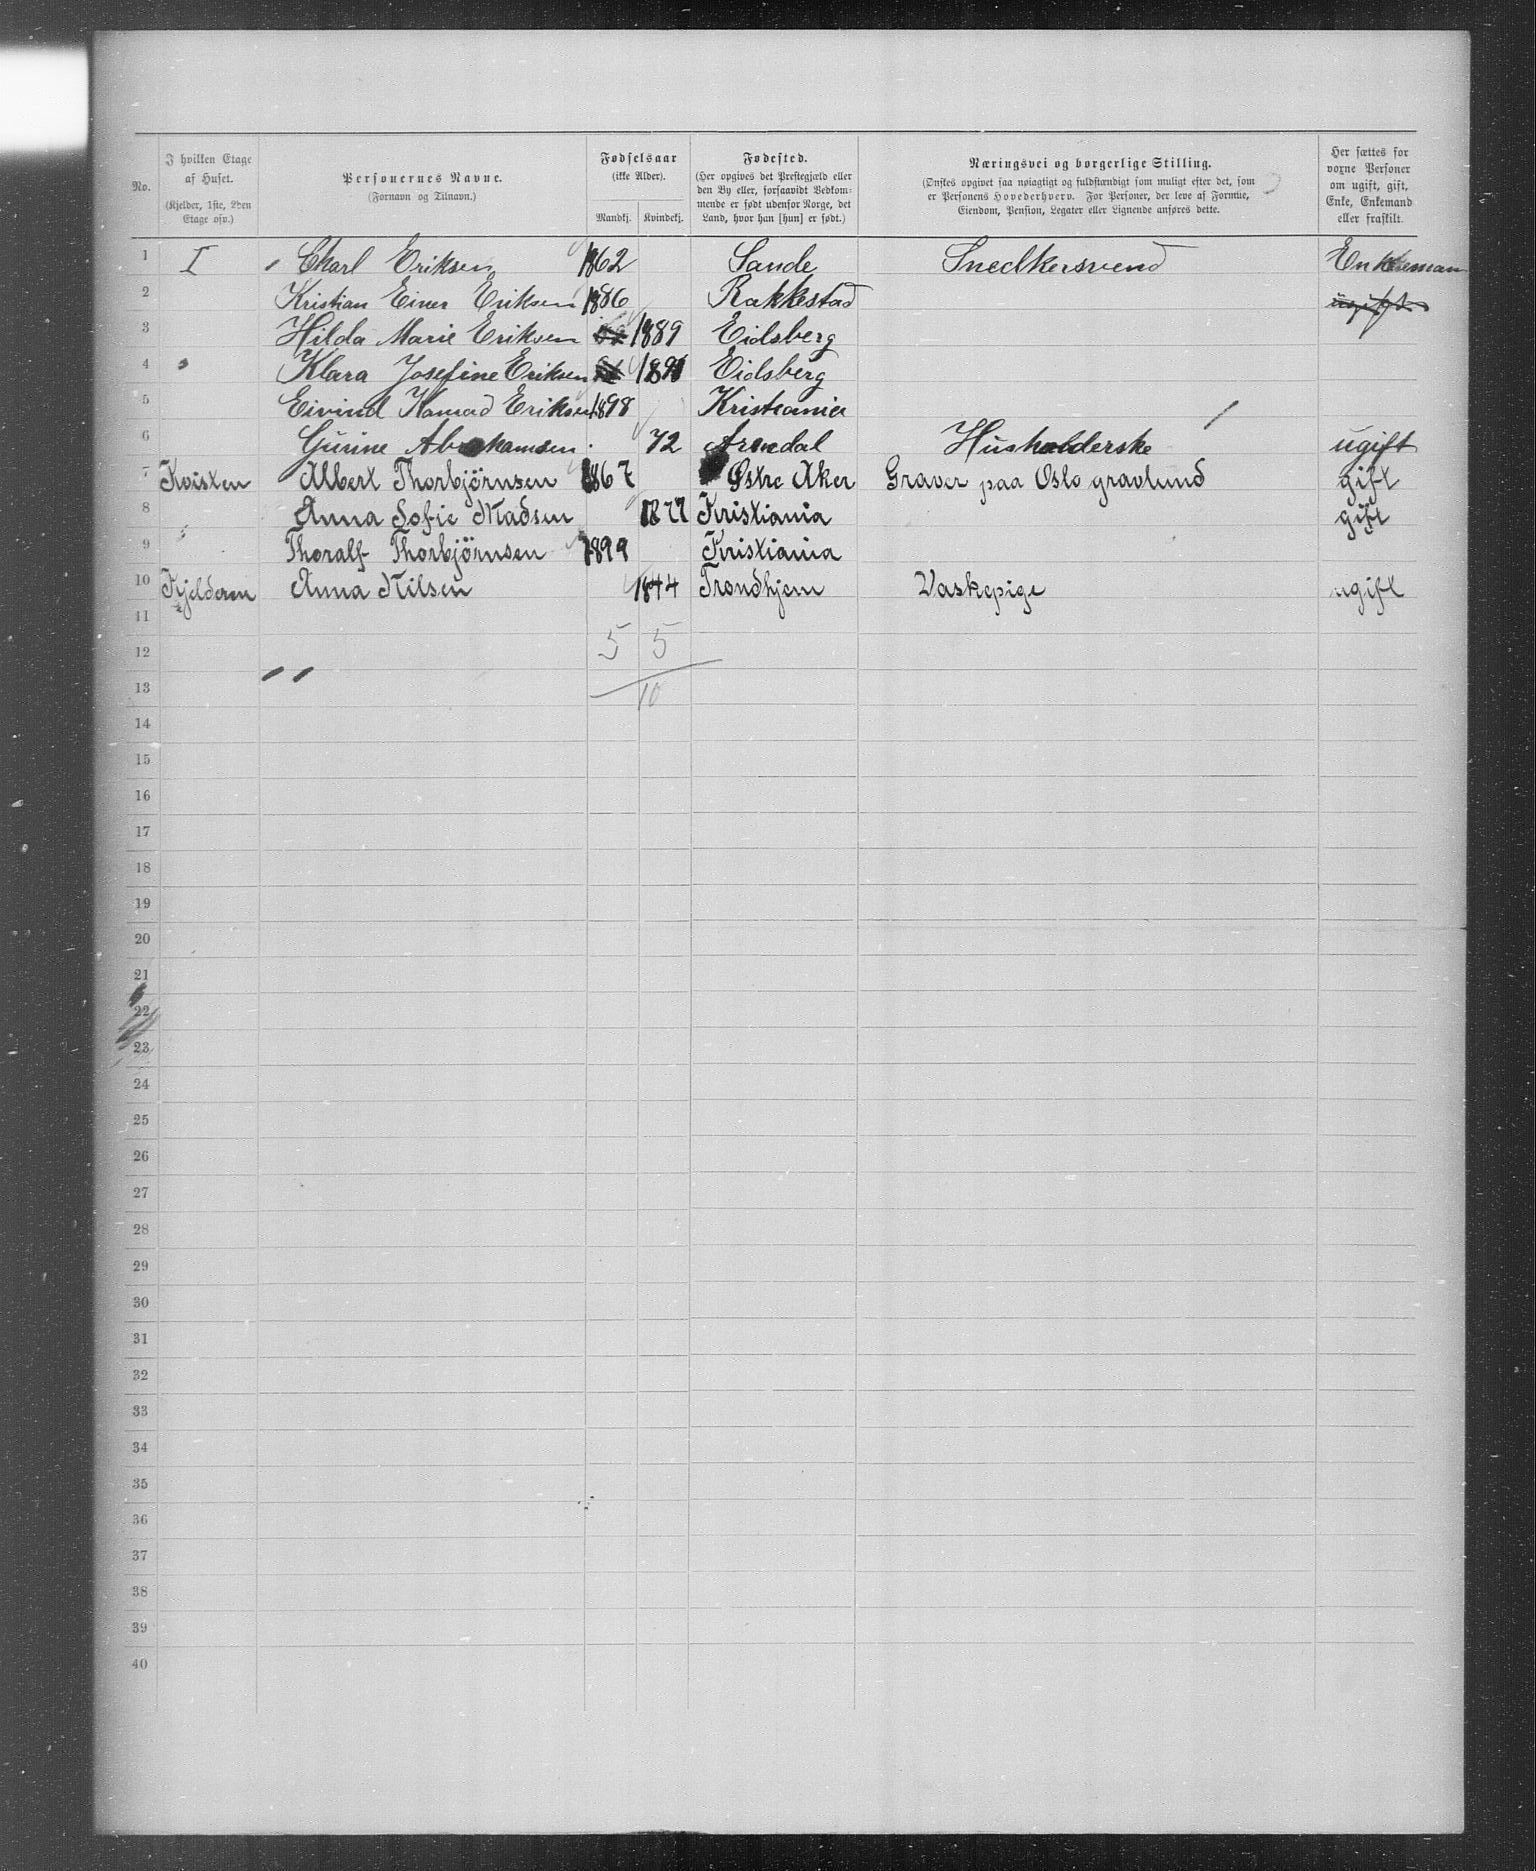 No.
I hvilken Etage af Huset. (Kjelder, 1ste, 2den Etage osv.)
Personernes Navne. (Fornavn og Tilnavn.)
Fødselsaar (ikke Alder). Mandkj. Kvindekj.
Fødested. (Her opgives det Prestegjæld eller den By eller, forsaavidt Vedkommende er født udenfor Norge, det Land, hvor han [hun] er født.)
Næringsvei og borgerlige Stilling. (Ønskes opgivet saa nøiagtigt og fuldstændigt som muligt efter det, som er Personens Hovederhverv. For Personer, der leve af Formue, Eiendom, Pension, Legater eller Lignende anføres dette.
Her sættes for voxne Personer om ugift, gift, Enke, Enkemand eller fraskilt.
1 I Charl Eriksen 1862 Sande Snedkersvend Enkeman
2 Kristian Einer Eriksen 1886 Rakkestad ugift
3 Hilda Marie Eriksen 1889 Eidsberg
4 Klara Josefine Eriksen 1891 Eidsberg
5 Eivind Konrad Eriksen 1898 Kristiania
6 Gurine Abrahamsen 72 Arendal Husholderske ugift
7 Kvisten Albert Thorbjörnsen 1867 Østre Aker Graver paa Oslo gravlund gift
8 Anna Sofie Madsen 1877 Kristiania gift
9 Thoralf Thorbjörnsen 1899 Kristiania
10 Kjelderen Anna Nilsen 1844 Trondhjem Vaskepige ugift
11
12 5 5
13 10
14
15
16
17
18
19
20
21
22
23
24
25
26
27
28
29
30
31
32
33
34
35
36
37
38
39
40